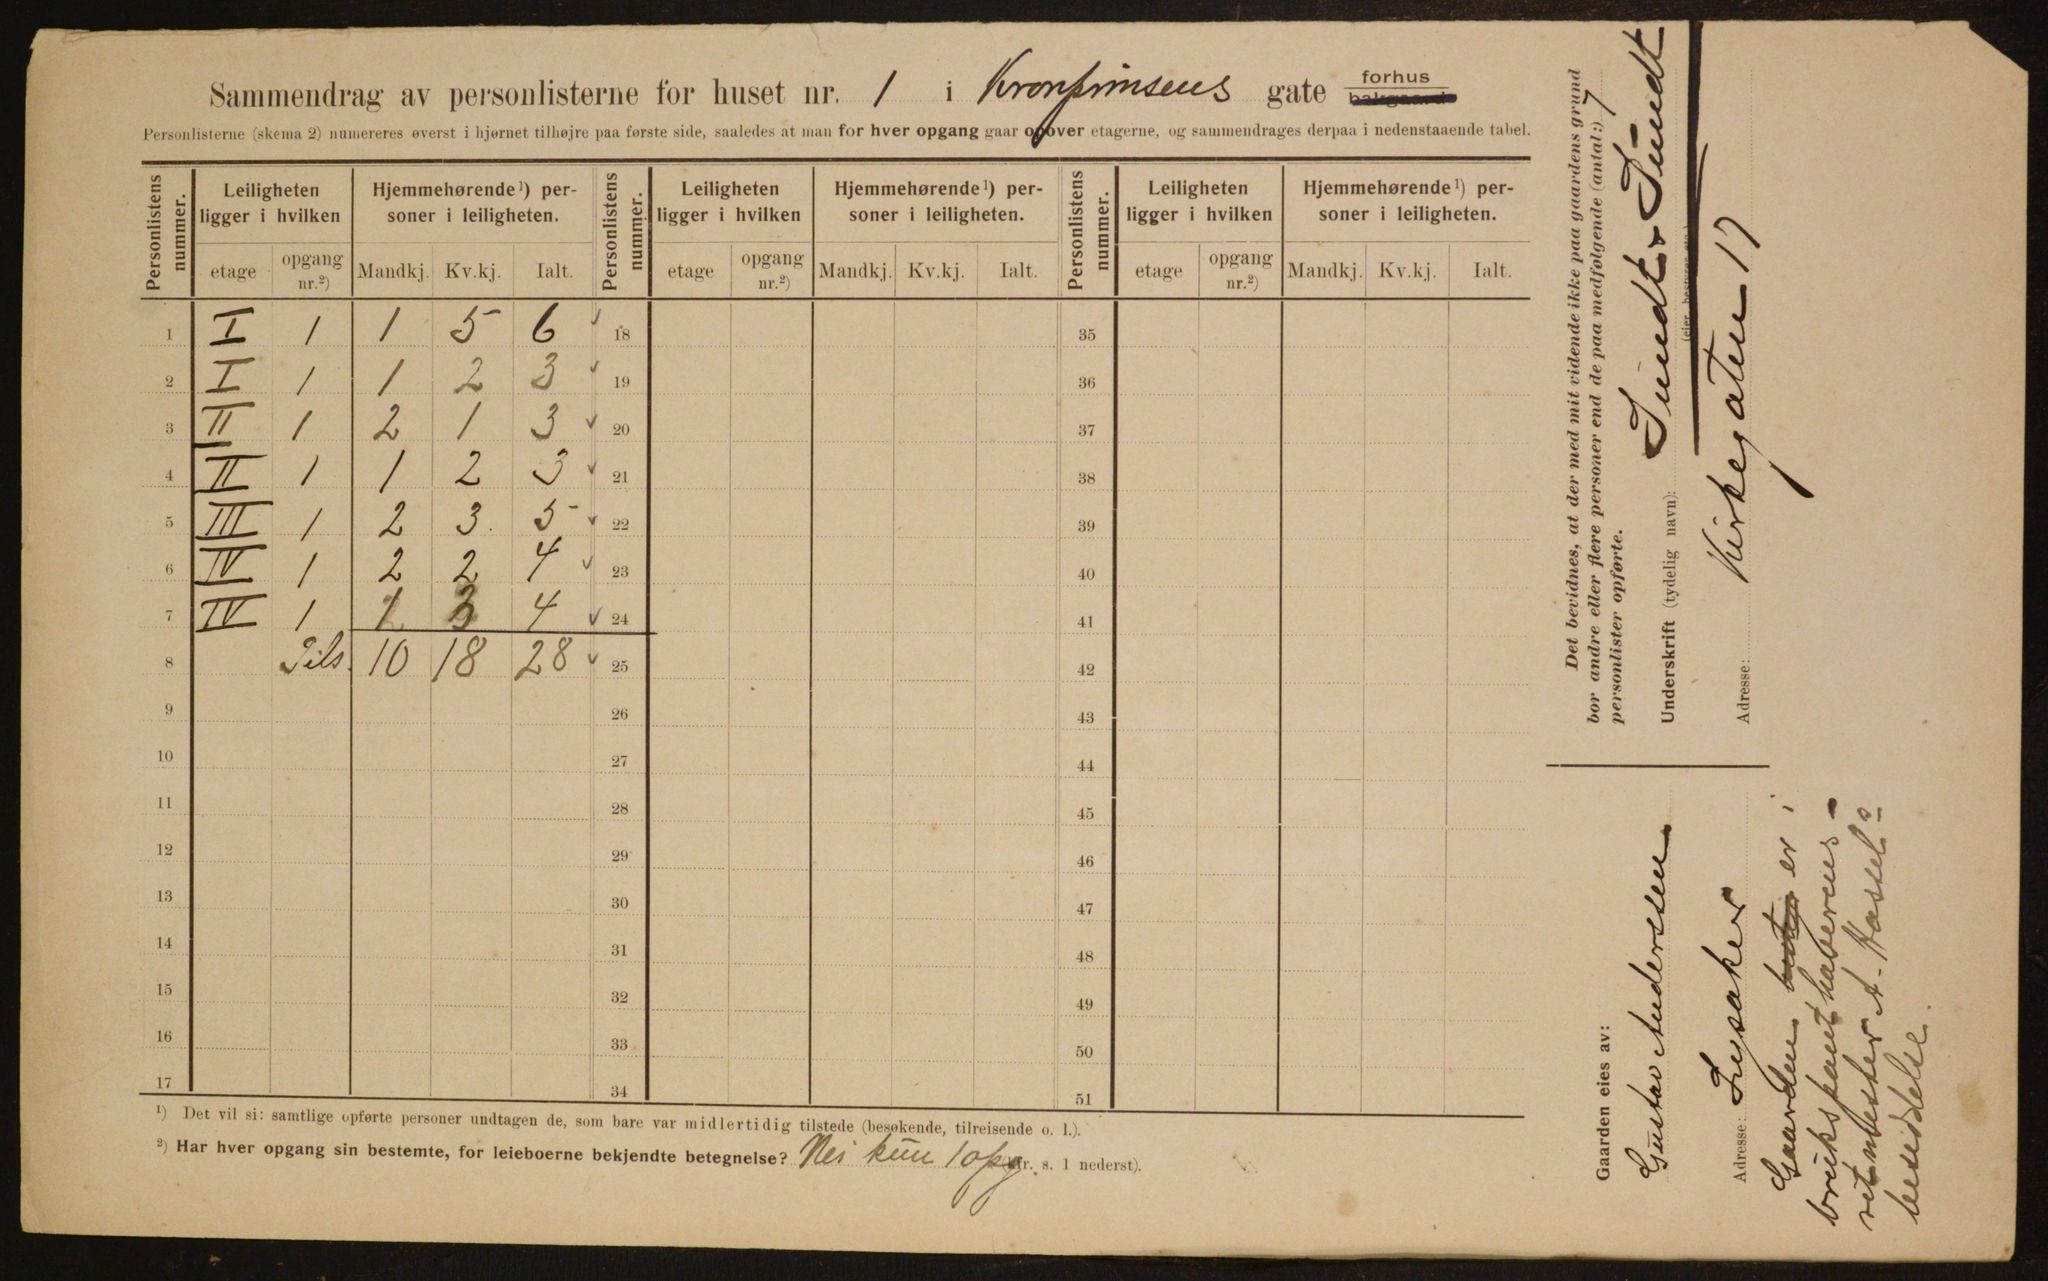 Sammendrag av personlisterne for huset nr. 1 i Kronprinsens gate forhus bakgaard
Personlisterne (skema 2) numereres øverst i hjørnet tilhøjre paa første side, saaledes at man for hver opgang gaar opover etagerne, og sammendrages derpaa i nedenstaaende tabel.
Personlistens nummer. Leiligheten ligger i hvilken Hjemmehørende¹) personer i leiligheten. Personlistens nummer. Leiligheten ligger i hvilken Hjemmehørende¹) personer i leiligheten. Personlistens nummer. Leiligheten ligger i hvilken Hjemmehørende¹) personer i leiligheten.
etage opgang nr.²) Mandkj. Kv.kj. Ialt. etage opgang nr.²) Mandkj. Kv.kj. Ialt. etage opgang nr.²) Mandkj. Kv.kj. Ialt.
1 I 1 1 5 6 ✓ 18 35
2 I 1 1 2 3 ✓ 19 36
3 II 1 2 1 3 ✓ 20 37
4 II 1 1 2 3 ✓ 21 38
5 III 1 2 3 5 ✓ 22 39
6 IV 1 2 2 4 ✓ 23 40
7 IV 1 1 3 4 ✓ 24 41
8 Tils. 10 18 28 ✓ 25 42
9 26 43
10 27 44
11 28 45
12 29 46
13 30 47
14 31 48
15 32 49
16 33 50
17 34 51
¹) Det vil si: samtlige opførte personer undtagen de, som bare var midlertidig tilstede (besøkende, tilreisende o. l.).
²) Har hver opgang sin bestemte, for leieboerne bekjendte betegnelse? Nei kun 1 opg. (cfr. s. 1 nederst).
Det bevidnes, at der med mit vidende ikke paa gaardens grund
bor andre eller flere personer end de paa medfølgende (antal:) 7
personlister opførte.
Underskrift (tydelig navn): Sundt & Sundt
(eier, bestyrer etc.)
Adresse: Kirkegaten 17
Gaarden eies av:
Gustav Anderssen
Adresse: Lysaker
Gaarden er i
brukspanthaverens-
ritmester A. Hassels
besiddelse.